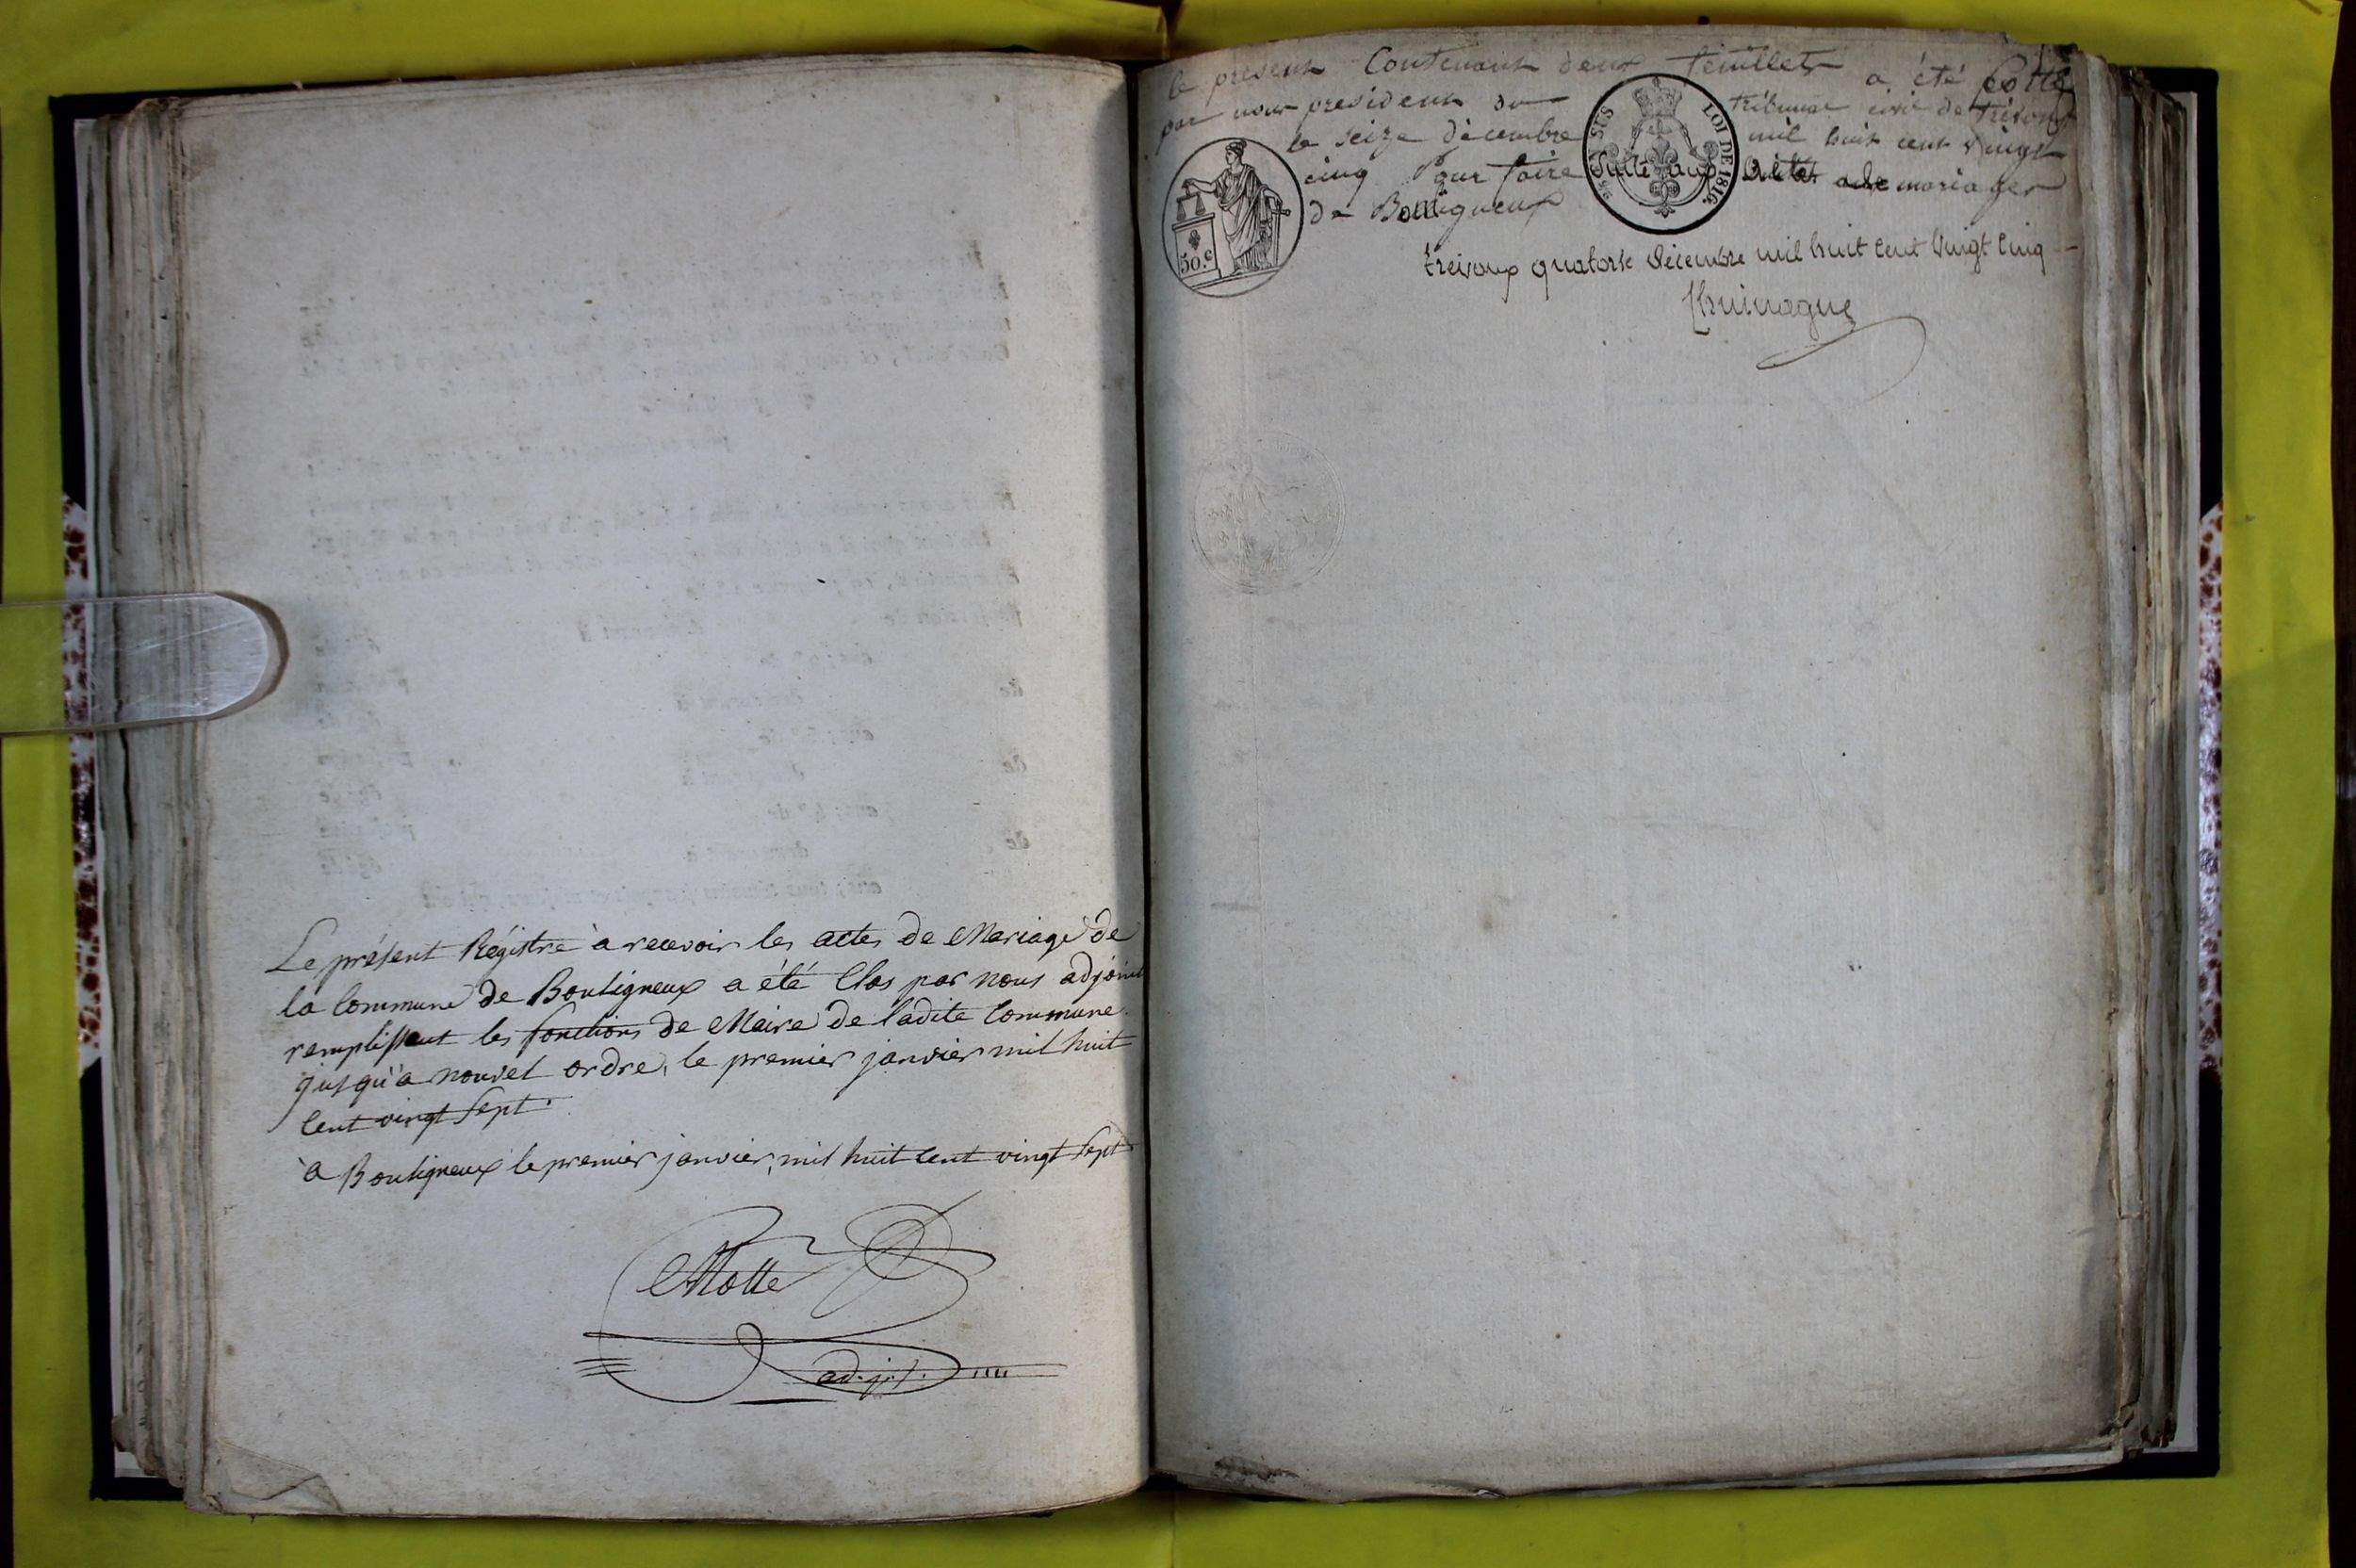 Le présent Régistre à recevoir les actes de Mariage de
la Commune de Bouligneux a été Clos par nous adjoint
remplissant les fonctions de Maire de ladite Commune
jusqu'à nouvel ordre, le premier janvier mil huit
Cent vingt Sept.
à Bouligneux le premier janvier, mil huit Cent vingt Sept
Motte
adj.t
le present Contenant deux feuillets a été Cotté
par nous president du tribunal civil de trévoux
le seize décembre mil huit cent vingt
cinq Pour faire Suite aux actes de mariages
de Bouligneux
50.c
EN SUS
LOI DE 1816.
trévoux quatorze décembre mil huit Cent Vingt Cinq